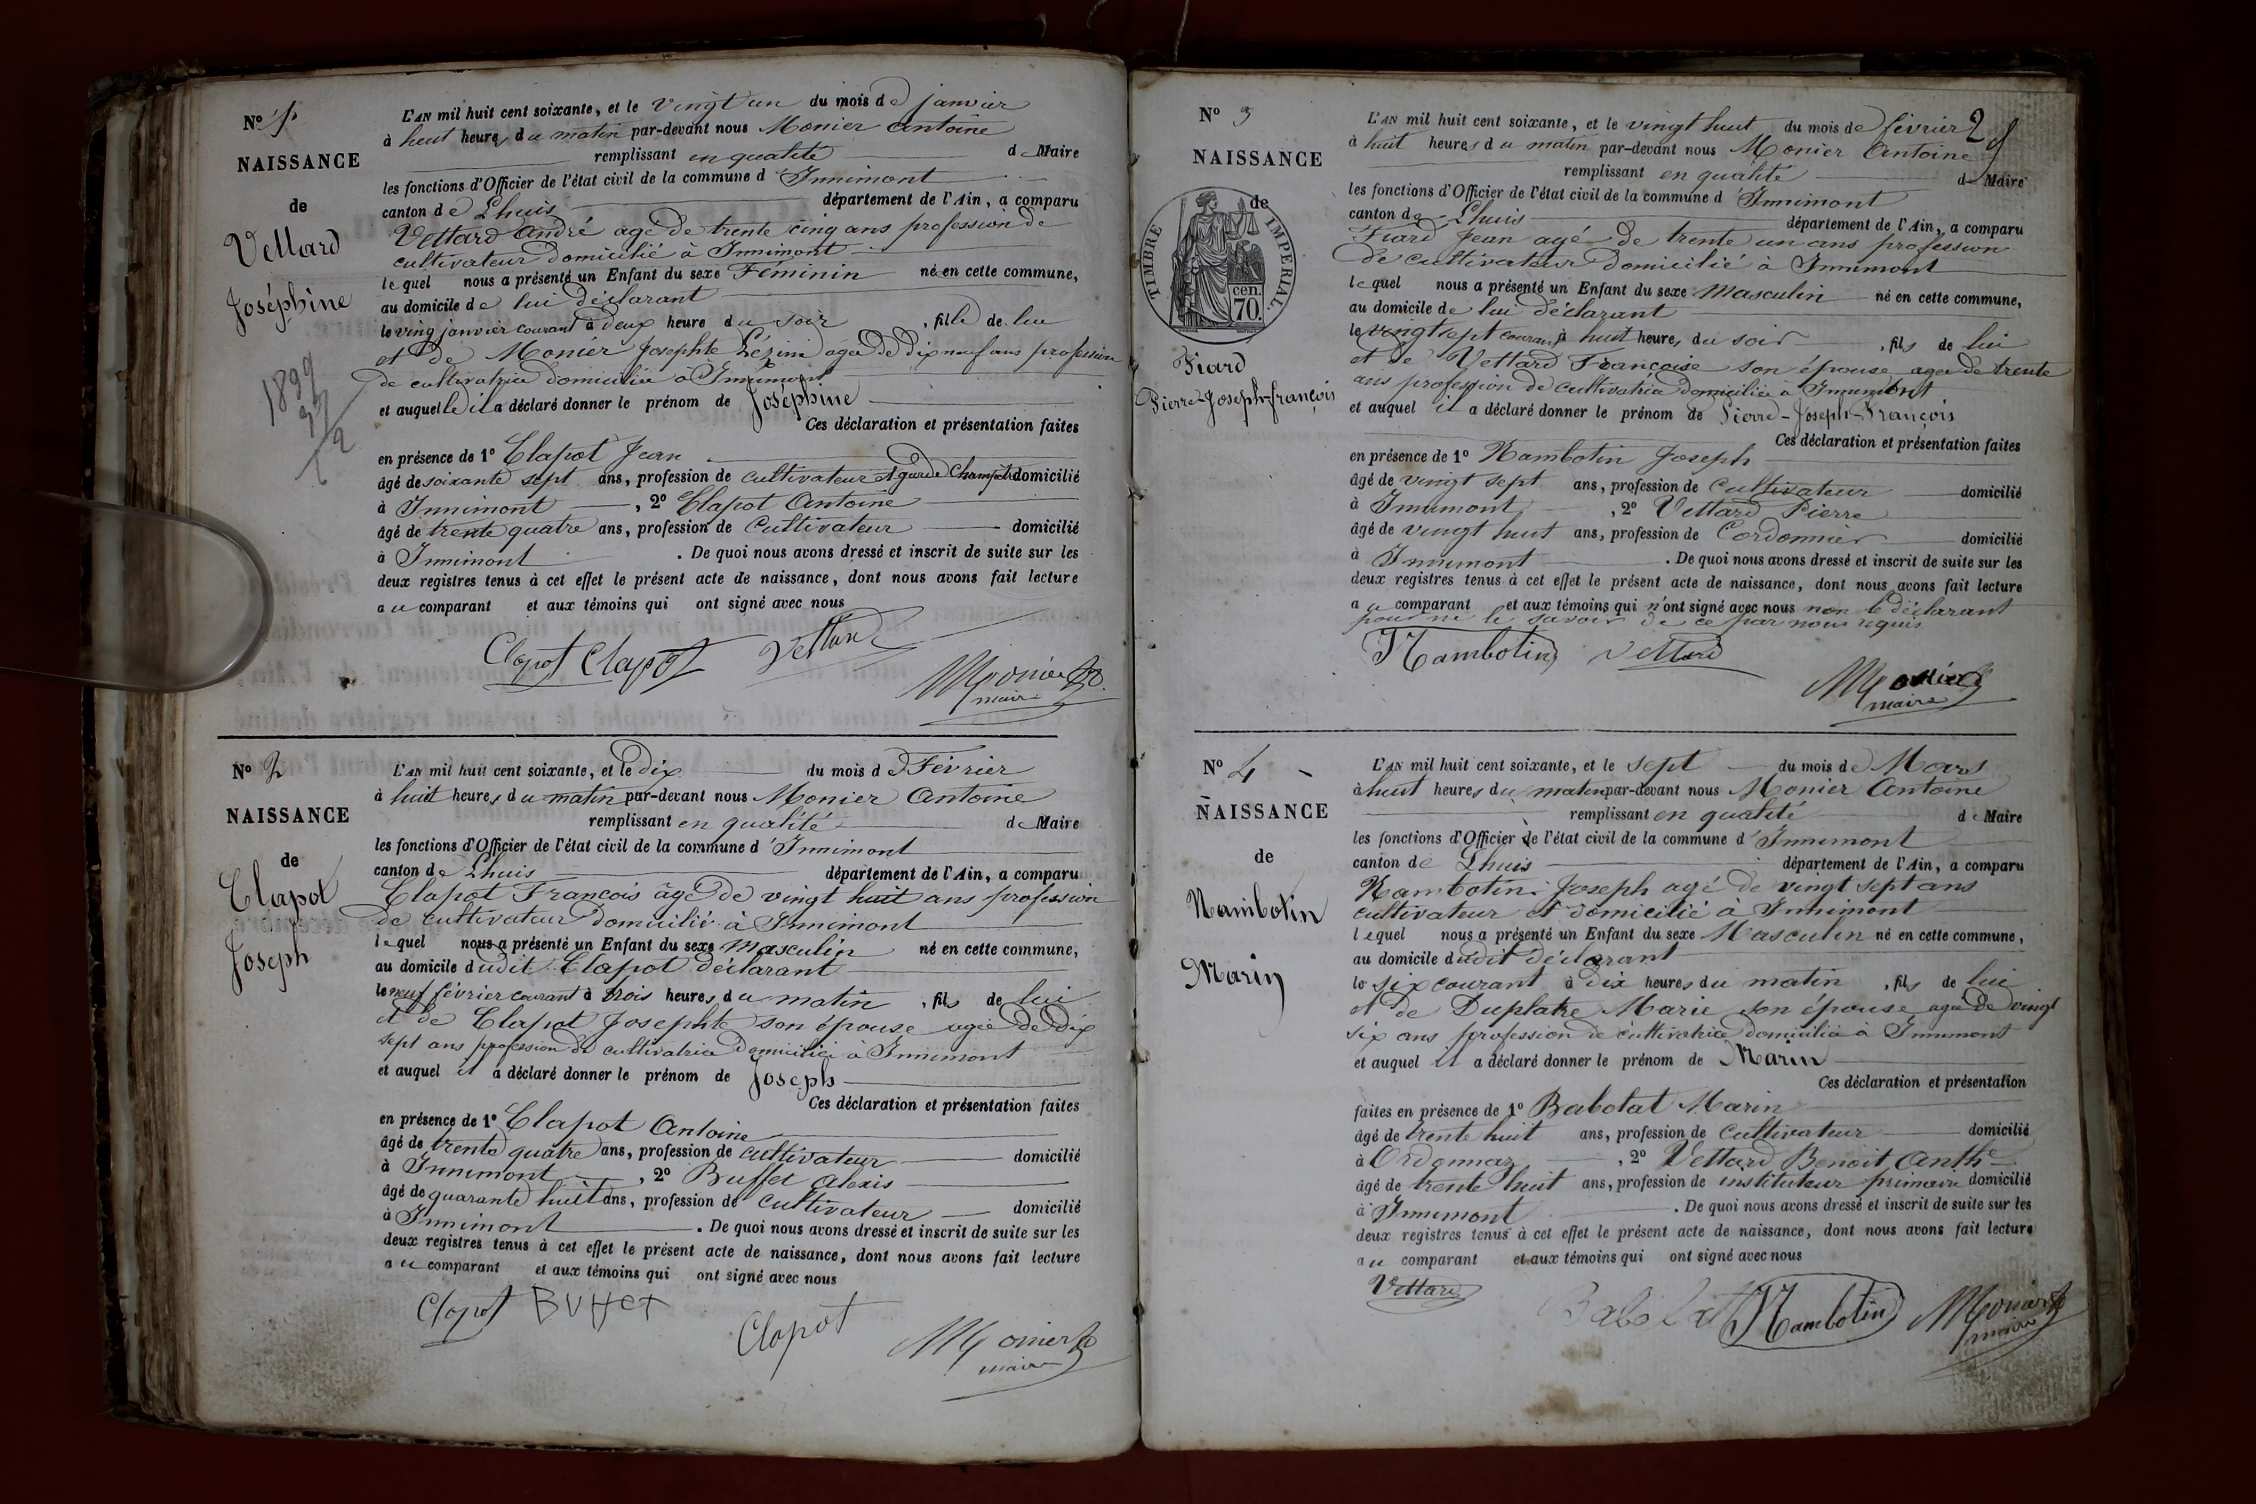 N° 1
NAISSANCE
de
Vettard
Joséphine
L'AN mil huit cent soixante, et le vingt un du mois de janvier
à huit heures du matin par-devant nous Monier Antoine
remplissant en qualité de Maire
les fonctions d'Officier de l'état civil de la commune d'Innimont
canton de Lhuis département de l'Ain, a comparu
Vettard André agé de trente cinq ans profession de
cultivateur domicilié à Innimont
lequel nous a présenté un Enfant du sexe Féminin né en cette commune,
au domicile de lui déclarant
le ving janvier courant à deux heure du soir, fille de lui
et de Monier Josephte agée de dix neuf ans profession
de cultivatrice domiciliée à Innimont
et auquelle il a déclaré donner le prénom de Joséphine
Ces déclaration et présentation faites
en présence de 1° Clapot Jean
âgé de soixante sept ans, profession de cultivateur et garde Champêtre domicilié
à Innimont, 2° Clapot Antoine
âgé de trente quatre ans, profession de Cultivateur domicilié
à Innimont. De quoi nous avons dressé et inscrit de suite sur les
deux registres tenus à cet effet le présent acte de naissance, dont nous avons fait lecture
au comparant et aux témoins qui ont signé avec nous
Clapot Clapot Vettard
Monier
maire
N° 2
NAISSANCE
de
Clapot
Joseph
L'AN mil huit cent soixante, et le dix du mois de Février
à huit heures du matin par-devant nous Monier Antoine
remplissant en qualité de Maire
les fonctions d'Officier de l'état civil de la commune d'Innimont
canton de Lhuis département de l'Ain, a comparu
Clapot François âgé de vingt huit ans profession
de cultivateur domicilié à Innimont
lequel nous a présenté un Enfant du sexe Masculin né en cette commune,
au domicile dudit Clapot déclarant
le neuf février courant à trois heures du matin, fils de lui
et de Clapot Josephte son épouse agée de dix
sept ans profession de cultivatrice domiciliée à Innimont
et auquel il a déclaré donner le prénom de Joseph
Ces déclaration et présentation faites
en présence de 1° Clapot Antoine
âgé de trente quatre ans, profession de cultivateur domicilié
à Innimont, 2° Buffet Alexis
âgé de quarante huit ans, profession de Cultivateur domicilié
à Innimont. De quoi nous avons dressé et inscrit de suite sur les
deux registres tenus à cet effet le présent acte de naissance, dont nous avons fait lecture
au comparant et aux témoins qui ont signé avec nous
Clapot Clapot
Monier
maire
2
N° 3
NAISSANCE
de
TIMBRE IMPERIAL.
70 cen.
Fiard
Pierre-Joseph-françois
L'AN mil huit cent soixante, et le vingt huit du mois de février
à huit heures du matin par-devant nous Monier Antoine
remplissant en qualité de Maire
les fonctions d'Officier de l'état civil de la commune d'Innimont
canton de Lhuis département de l'Ain, a comparu
Fiard Jean agé de trente un ans profession
de cultivateur domicilié à Innimont
lequel nous a présenté un Enfant du sexe Masculin né en cette commune,
au domicile de lui déclarant
le vingt sept courant à huit heures du soir, fils de lui
et de Vettard Françoise son épouse agée de trente
ans profession de cultivatrice domiciliée à Innimont
et auquel il a déclaré donner le prénom de Pierre-Joseph-François
Ces déclaration et présentation faites
en présence de 1° Nambotin Joseph
âgé de vingt sept ans, profession de Cultivateur domicilié
à Innimont, 2° Vettard Pierre
âgé de vingt huit ans, profession de Cordonnier domicilié
à Innimont. De quoi nous avons dressé et inscrit de suite sur les
deux registres tenus à cet effet le présent acte de naissance, dont nous avons fait lecture
au comparant et aux témoins qui n'ont signé avec nous non le déclarant
pour ne le savoir de ce par nous requis
Nambotin Vettard
Monier
maire
N° 4
NAISSANCE
de
Nambotin
Marin
L'AN mil huit cent soixante, et le sept du mois de Mars
à huit heures du matin par-devant nous Monier Antoine
remplissant en qualité de Maire
les fonctions d'Officier de l'état civil de la commune d'Innimont
canton de Lhuis département de l'Ain, a comparu
Nambotin Joseph agé de vingt sept ans
cultivateur et domicilié à Innimont
lequel nous a présenté un Enfant du sexe Masculin né en cette commune,
au domicile dudit déclarant
le six courant à dix heures du matin, fils de lui
et de Duplatre Marie son épouse agée de vingt
six ans profession de cultivatrice domiciliée à Innimont
et auquel il a déclaré donner le prénom de Marin
Ces déclaration et présentation
faites en présence de 1° Babolat Marin
âgé de trente huit ans, profession de Cultivateur domicilié
à Ordonnaz, 2° Vettard Benoit Anthe
âgé de trente huit ans, profession de instituteur primaire domicilié
à Innimont. De quoi nous avons dressé et inscrit de suite sur les
deux registres tenus à cet effet le présent acte de naissance, dont nous avons fait lecture
au comparant et aux témoins qui ont signé avec nous
Vettard
Babolat Nambotin Monier
maire